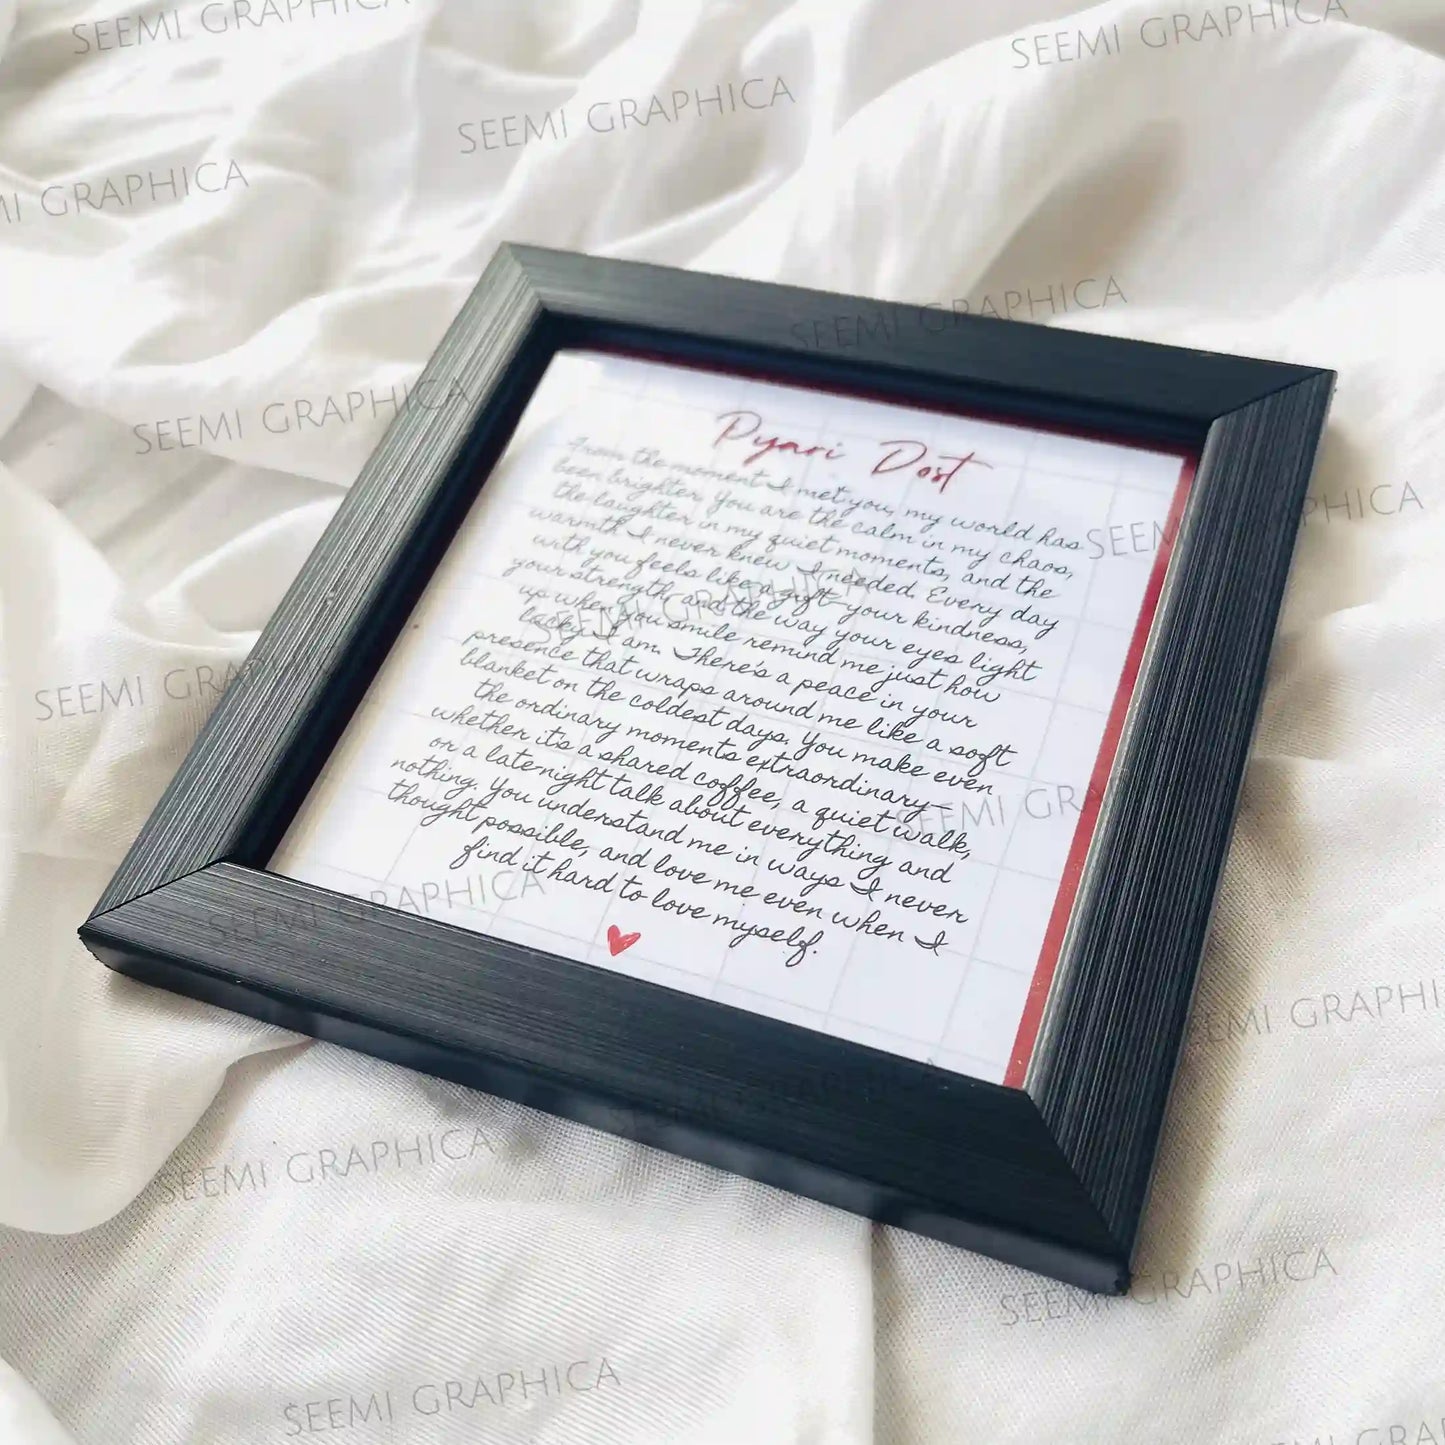 SEEMI GRAPHICA
SEEMI GRAPHICA
SEEMI GRAPHICA
MI GRAPHICA
SEEMI GRAPHICA
SEEMI GRAPHICA
Pyari Dost
From the moment I met you, my world has
been brighter. You are the calm in my chaos,
the laughter in my quiet moments, and the
warmth I never knew I needed. Every day
with you feels like a gift—your kindness,
your strength, and the way your eyes light
up when you smile remind me just how
lucky I am. There's a peace in your
presence that wraps around me like a soft
blanket on the coldest days. You make even
the ordinary moments extraordinary—
whether it's a shared coffee, a quiet walk,
or a late-night talk about everything and
nothing. You understand me in ways I never
thought possible, and love me even when I
find it hard to love myself.
SEEMI GRAPHICA
SEEMI GRAPHICA
SEEMI GRA
SEEMI GRA
SEEMI GRAPHICA
EMI GRAPHI
SEEMI GRAPHICA
SEEMI GRAPHICA
SEEMI GRAPHICA
SEEMI GRAPHICA